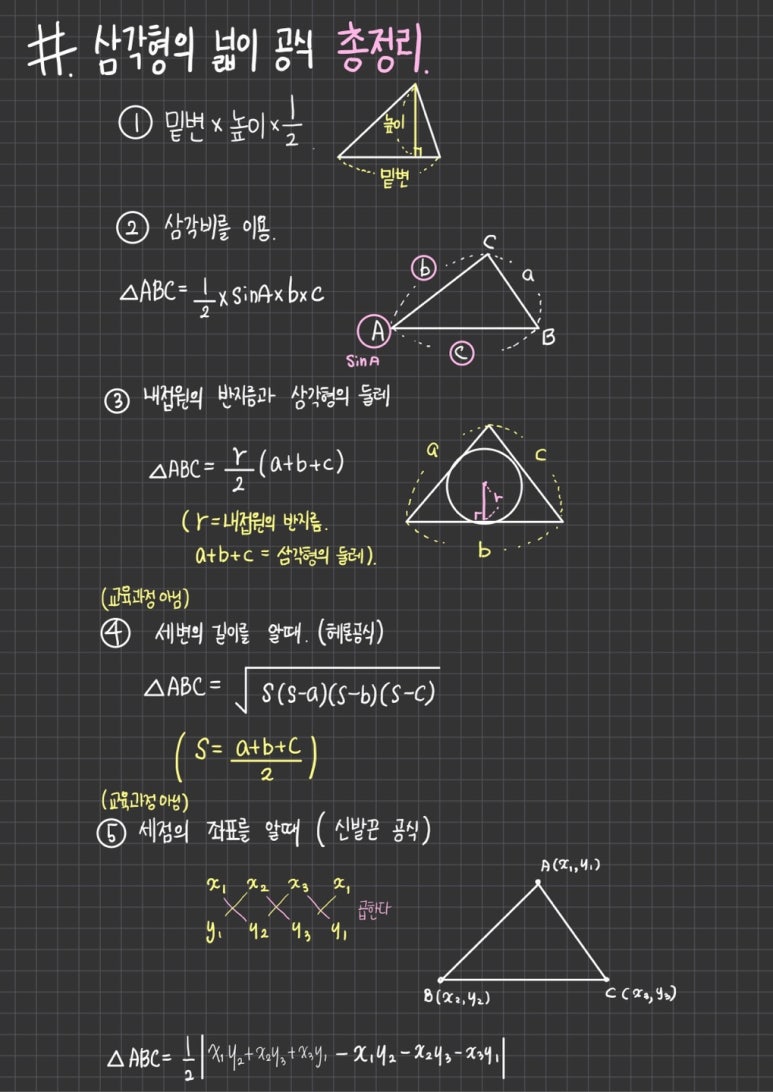 #. 삼각형의 넓이 공식 총정리.
① 밑변 × 높이 × 1/2
높이
밑변
② 삼각비를 이용.
△ABC = 1/2 × sinA × b × c
C
b
a
A
B
sinA
c
③ 내접원의 반지름과 삼각형의 둘레
△ABC = r/2 (a+b+c)
(r = 내접원의 반지름.
a+b+c = 삼각형의 둘레).
a
c
r
b
(교육과정 아님)
④ 세변의 길이를 알때. (헤론공식)
△ABC = √S(S-a)(S-b)(S-c)
(S = a+b+c/2)
(교육과정 아님)
⑤ 세점의 좌표를 알때 (신발끈 공식)
x₁ x₂ x₃ x₁
곱한다
y₁ y₂ y₃ y₁
A(x₁, y₁)
B(x₂, y₂)
C(x₃, y₃)
△ABC = 1/2 |x₁y₂+x₂y₃+x₃y₁ - x₁y₂ - x₂y₃ - x₃y₁|